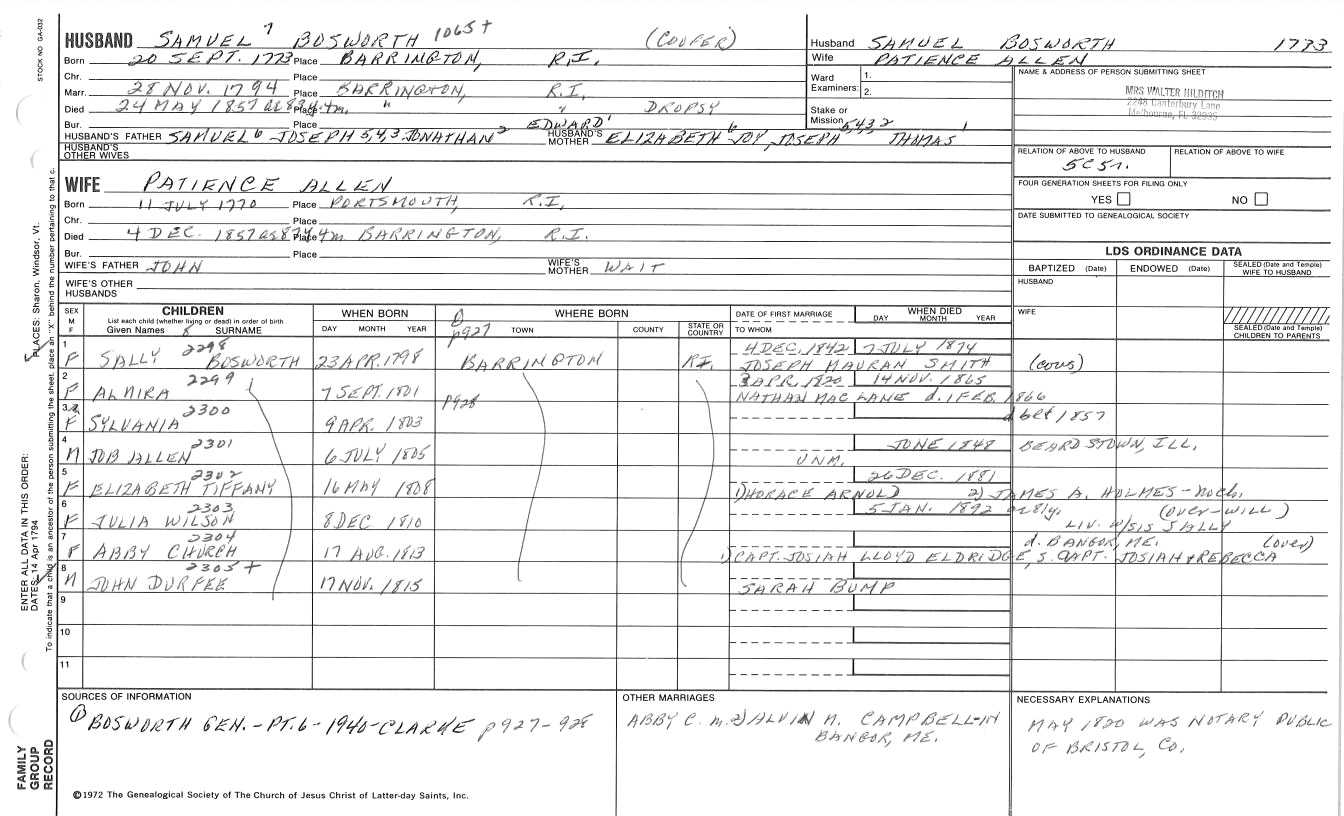 STOCK NO. GA-032
HUSBAND SAMUEL 7 BOSWORTH 1065+ (COOPER)
Born 20 SEPT. 1773 Place BARRINGTON, R.I.
Chr. Place
Marr. 28 NOV. 1794 Place BARRINGTON, R.I.
Died 24 MAY 1857 Place " " DROPSY
Bur. Place
HUSBAND'S FATHER SAMUEL 6 JOSEPH 5,4,3 JONATHAN 2 EDWARD 1 HUSBAND'S MOTHER ELIZABETH 6 JOY, JOSEPH 5,4,3,2 THOMAS 1
HUSBAND'S OTHER WIVES
Husband SAMUEL BOSWORTH 1773
Wife PATIENCE ALLEN
Ward Examiners: 1. 2.
Stake or Mission
NAME & ADDRESS OF PERSON SUBMITTING SHEET
MRS WALTER HILDITCH
2248 Canterbury Lane
Melbourne, FL 32935
RELATION OF ABOVE TO HUSBAND RELATION OF ABOVE TO WIFE
5C5r.
FOUR GENERATION SHEETS FOR FILING ONLY
YES NO
DATE SUBMITTED TO GENEALOGICAL SOCIETY
WIFE PATIENCE ALLEN
Born 11 JULY 1770 Place PORTSMOUTH, R.I.
Chr. Place
Died 4 DEC. 1857 Place BARRINGTON, R.I.
Bur. Place
WIFE'S FATHER JOHN WIFE'S MOTHER WAIT
WIFE'S OTHER HUSBANDS
LDS ORDINANCE DATA
BAPTIZED (Date) ENDOWED (Date) SEALED (Date and Temple) WIFE TO HUSBAND
HUSBAND
WIFE
SEALED (Date and Temple) CHILDREN TO PARENTS
SEX M F
CHILDREN
List each child (whether living or dead) in order of birth
Given Names SURNAME
WHEN BORN
DAY MONTH YEAR
WHERE BORN
p927 TOWN COUNTY STATE OR COUNTRY
DATE OF FIRST MARRIAGE
TO WHOM
WHEN DIED
DAY MONTH YEAR
1 F SALLY 2298 BOSWORTH 23 APR. 1798 BARRINGTON R.I. 4 DEC. 1842 7 JULY 1874
JOSEPH MAURAN SMITH (cous)
2 F ALMIRA 2299 7 SEPT. 1801 3 APR. 1820 14 NOV. 1865
NATHAN MAC LANE d. 1 FEB. 1866
3 F SYLVANIA 2300 9 APR. 1803 p928 d bef 1857
4 M JOB ALLEN 2301 6 JULY 1805 JUNE 1848 BEARDSTOWN, ILL.
UNM.
5 F ELIZABETH TIFFANY 2302 16 MAY 1808 26 DEC. 1881
1) HORACE ARNOLD 2) JAMES A. HOLMES - no ch.
6 F JULIA WILSON 2303 8 DEC 1810 5 JAN. 1892 (OVER-WILL)
LIV. W/SIS SALLY
7 F ABBY CHURCH 2304 17 AUG. 1813 d. BANGOR, ME. (over)
1) CAPT. JOSIAH LLOYD ELDRIDGE, S. CAPT. JOSIAH & REBECCA
8 M JOHN DURFEE 2305+ 17 NOV. 1815
SARAH BUMP
9
10
11
SOURCES OF INFORMATION
① BOSWORTH GEN. - PT. 6 - 1940 - CLARKE p927-928
OTHER MARRIAGES
ABBY C. m. 2) ALVIN N. CAMPBELL - IN
BANGOR, ME.
NECESSARY EXPLANATIONS
MAY 1820 WAS NOTARY PUBLIC
OF BRISTOL, CO.
©1972 The Genealogical Society of The Church of Jesus Christ of Latter-day Saints, Inc.
ENTER ALL DATA IN THIS ORDER:
DATES: 14 Apr 1794
PLACES: Sharon, Windsor, Vt.
To indicate that a child is an ancestor of the person submitting the sheet, place an "X" behind the number pertaining to that c.
FAMILY GROUP RECORD